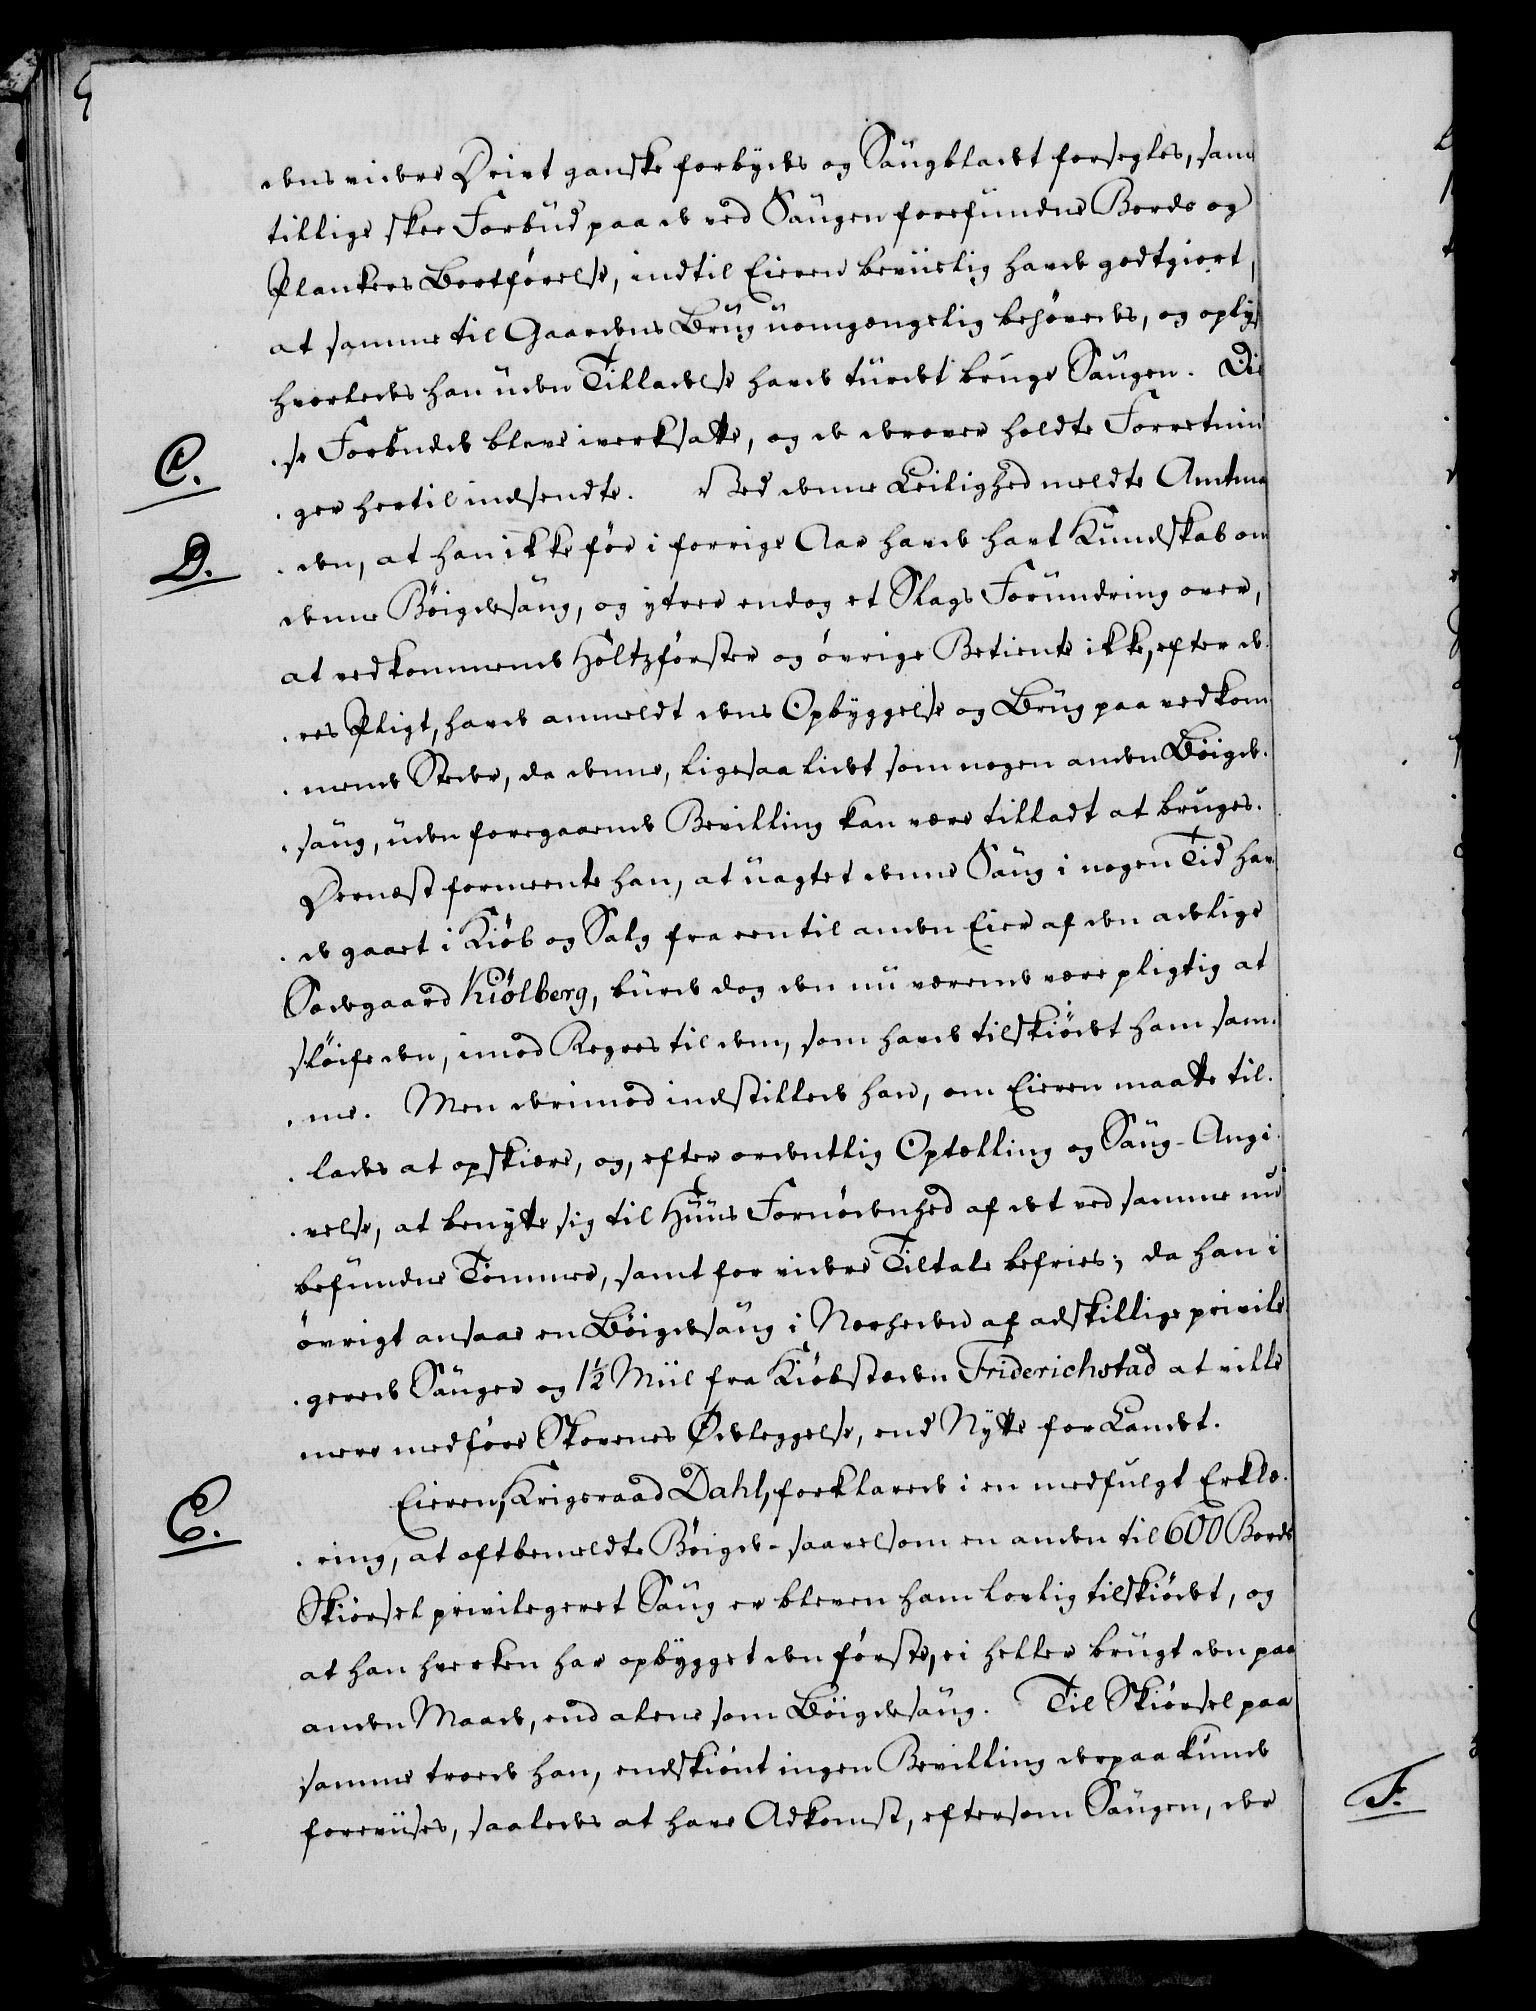 dens videre Drivt ganske forbydes og Saugbladet forsegles, sam
tillige skee Forbud paa de ved Saugen forefundne Bords og
Plankers Bortförelse, indtil Eieren beviislig havde godtgiort,
at samme til Gaardens Brug uomgængelig behövedes, og oplys
hvorledes han uden Tilladelse havde turdet bruge Saugen. Dis
C.
se Forbudde bleve iverksatte, og de derover holdte Forretnin
ger hertil indsendte. Ved denne Leilighed meldte Amtma
D.
den, at han ikke för i forrige Aar havde havt Kundskab om
denne Böigdesaug, og ytrer endog et Slags Forundring over,
at vedkommende Holtzförster og övrige Betiente ikke, efter de-
res Pligt, havde anmeldt dens Opbyggelse og Brug paa vedkom
mende Steder, da denne, ligesaa lidet som nogen anden Böigde-
saug, uden foregaaende Bevilling kan være tilladt at bruges.
Dernæst formeente han, at uagtet denne Saug i nogen Tid hav
de gaaet i Kiöb og Salg fra een til anden Eier af den adelige
Sædegaard Kiölberg, burde dog den nu værende være pligtig at
slöife den, imod Regres til dem, som havde tilskiödet ham sam-
me. Men derimod indstillede han, om Eieren maatte til-
lades at opskiære, og, efter ordentlig Optælling og Saug-Angi-
velse, at benytte sig til Huus Fornödenhed af det ved samme nu
befundne Tömmer, samt for videre Tiltale befries; da han i
övrigt ansaae en Böigdesaug i Nærheden af adskillige privile
gerede Sauger og 1½ Miil fra Kiöbstæden Friderichstad at ville
mere medföre Skovenes Ödeleggelse, end Nytte for Landet.
E.
Eieren, Krigsraad Dahl, forklarede i en medfulgt Erklæ-
ring, at oftbemeldte Böigde- saavelsom en anden til 600 Bords
Skiörsel privilegeret Saug er bleven ham lovlig tilskiödet, og
at han hverken har opbygget den förste, ei heller brugt den paa
anden Maade, end alene som Böigdesaug. Til Skiörsel paa
samme troede han, endskiönt ingen Bevilling derpaa kunde
foreviises, saaledes at have Adkomst, eftersom Saugen, der
F.